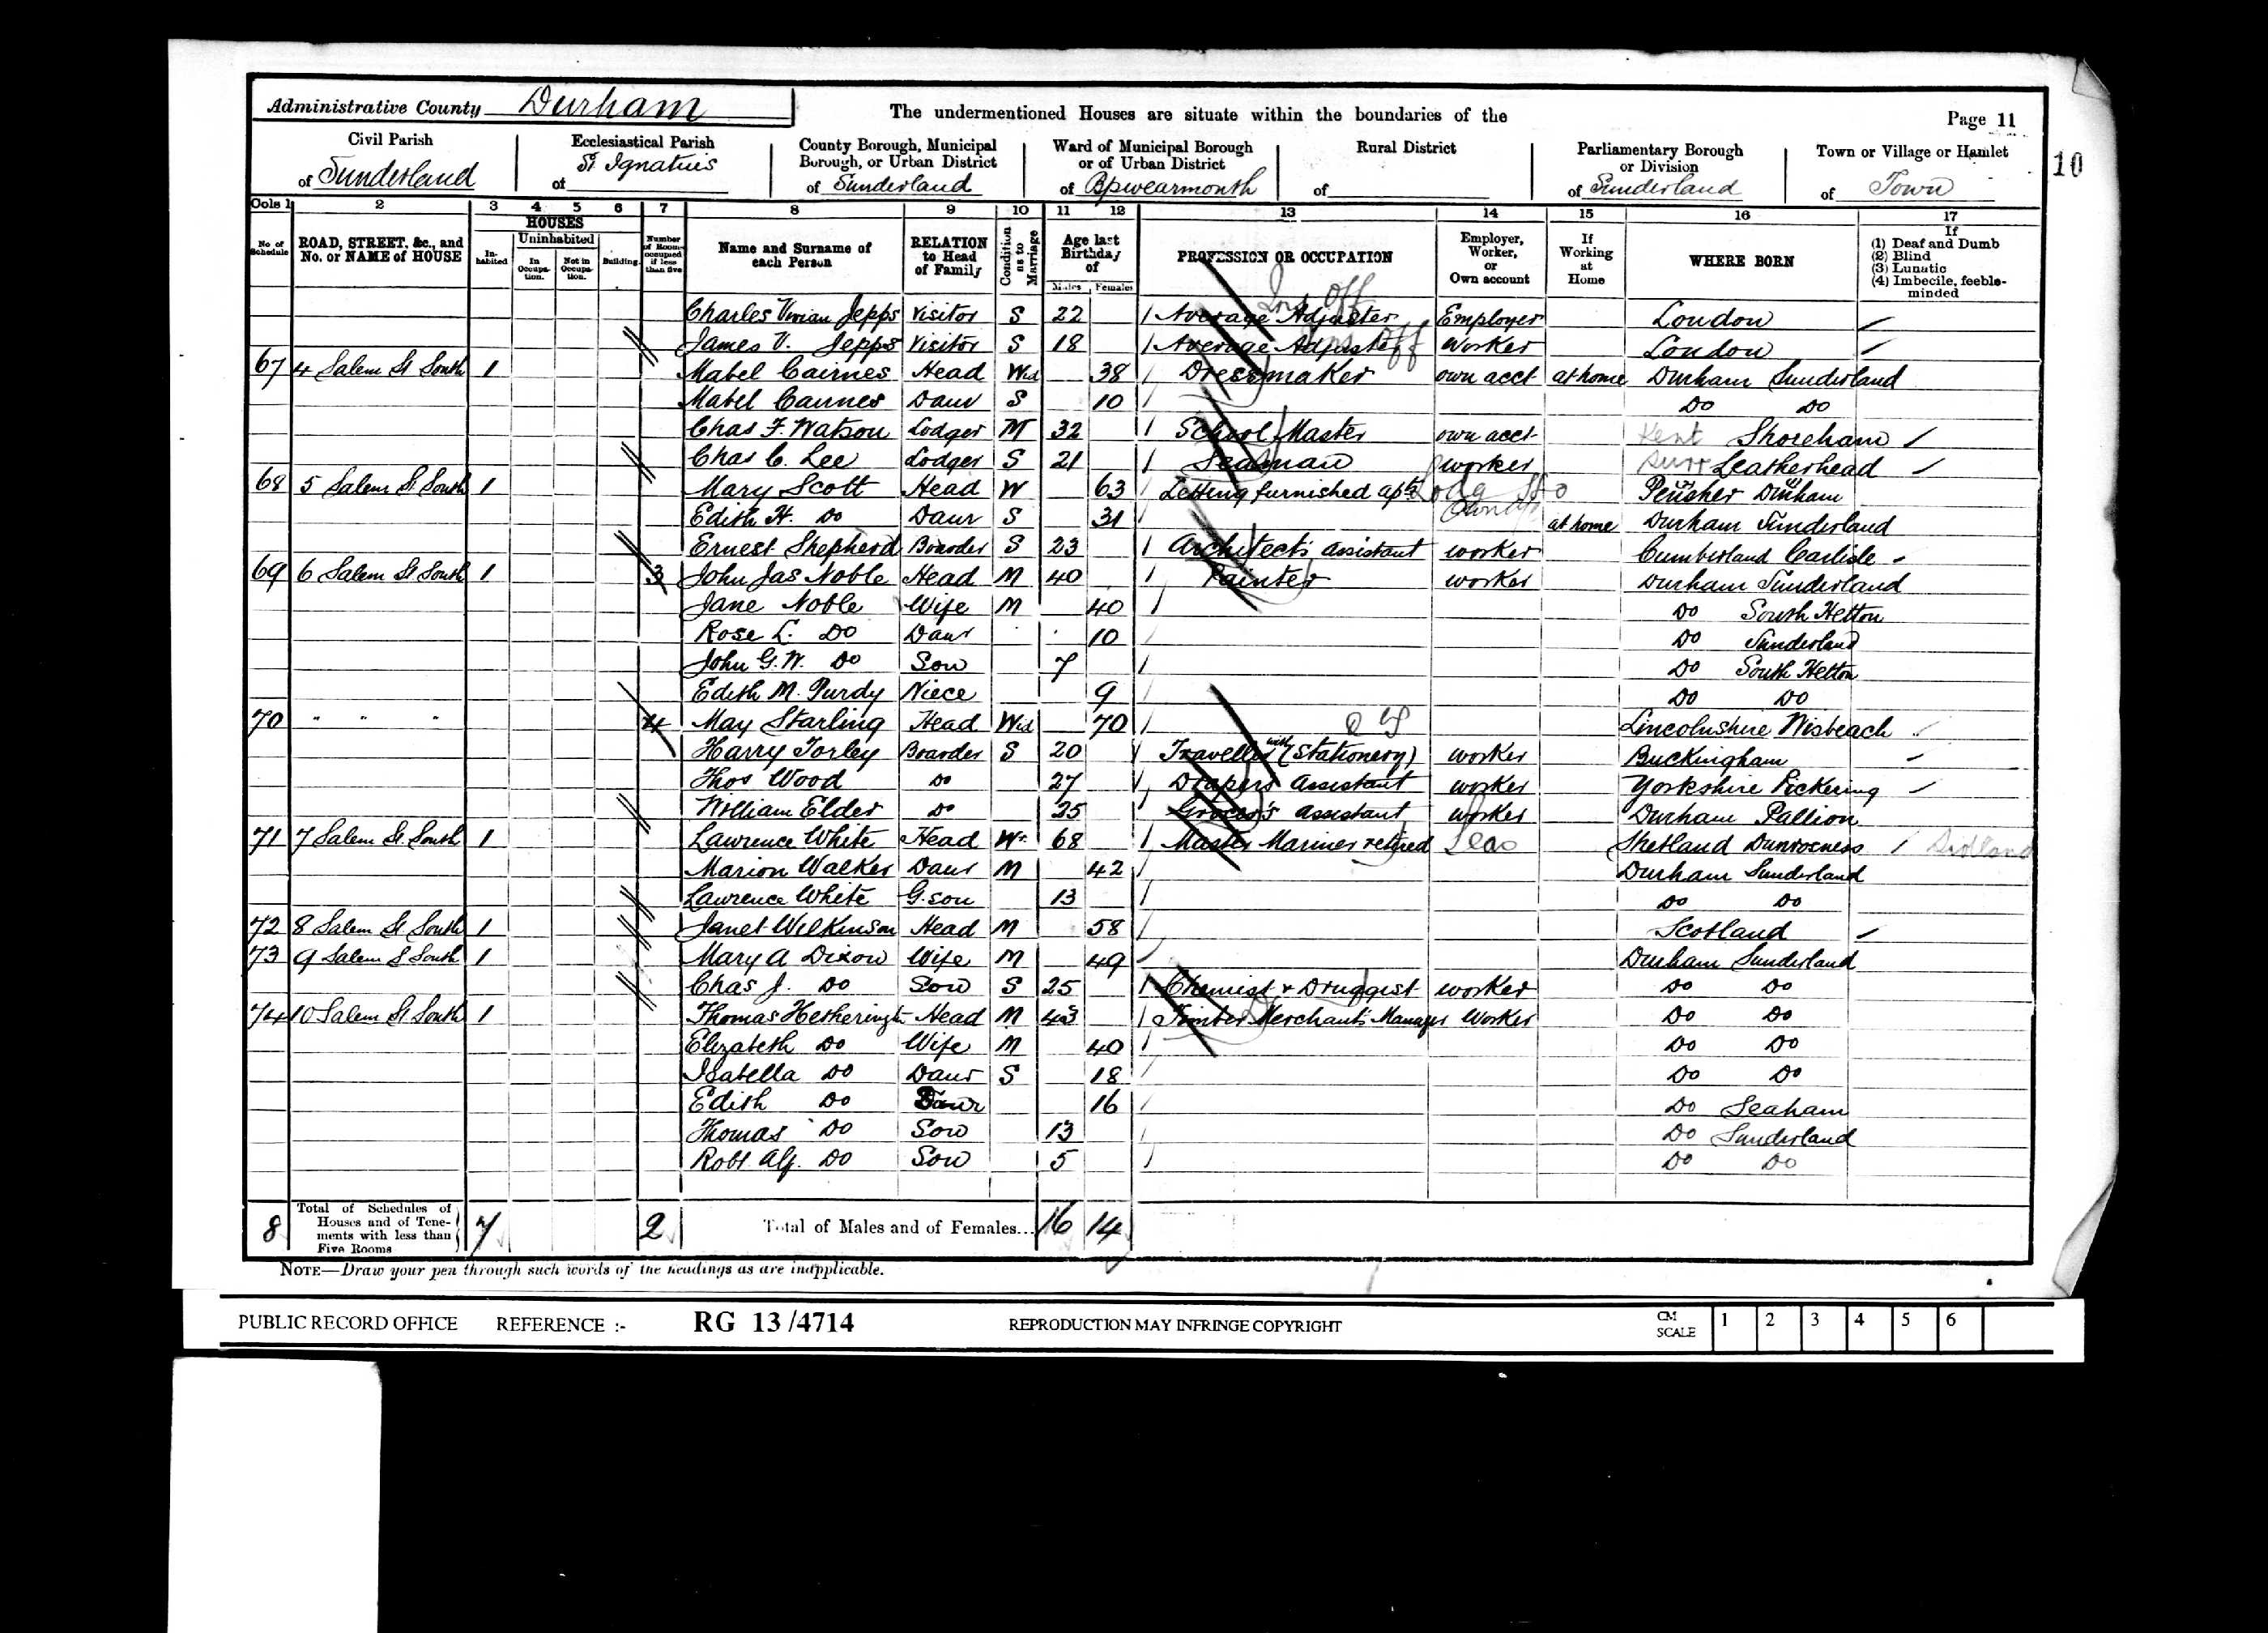 Administrative County Durham
The undermentioned Houses are situate within the boundaries of the
Page 11
10
Civil Parish of Sunderland
Ecclesiastical Parish of St Ignatius
County Borough, Municipal Borough, or Urban District of Sunderland
Ward of Municipal Borough or of Urban District of Bpwearmouth
Rural District of
Parliamentary Borough or Division of Sunderland
Town or Village or Hamlet of Town
Cols 1 2 3 4 5 6 7 8 9 10 11 12 13 14 15 16 17
No of Schedule
ROAD, STREET, &c., and No. or NAME of HOUSE
HOUSES
Inhabited
Uninhabited
In Occupation.
Not in Occupation.
Building.
Number of Rooms occupied if less than five
Name and Surname of each Person
RELATION to Head of Family
Condition as to Marriage
Age last Birthday of
Males Females
PROFESSION OR OCCUPATION
Employer, Worker, or Own account
If Working at Home
WHERE BORN
If
(1) Deaf and Dumb
(2) Blind
(3) Lunatic
(4) Imbecile, feeble-minded
Charles Vivian Jepps Visitor S 22 Average Adjuster Ins Off Employer London
James V. Jepps Visitor S 18 Average Adjuster Ins Off Worker London
67 4 Salem St South 1 Mabel Cairnes Head Wid 38 Dressmaker own acct at home Durham Sunderland
Mabel Cairnes Daur S 10 Do Do
Chas F. Watson Lodger M 32 School Master own acct Kent Shoreham
Chas C. Lee Lodger S 21 Seaman worker Surr Leatherhead
68 5 Salem St South 1 Mary Scott Head W 63 Letting furnished apts Pensher Durham
Edith H. Do Daur S 31 at home Durham Sunderland
Ernest Shepherd Boarder S 23 Architect's assistant worker Cumberland Carlisle
69 6 Salem St South 1 3 John Jas Noble Head M 40 Painter worker Durham Sunderland
Jane Noble Wife M 40 Do South Hetton
Rose L. Do Daur 10 Do Sunderland
John G. W. Do Son 7 Do South Hetton
Edith M. Purdy Niece 9 Do Do
70 " " " 4 May Starling Head Wid 70 Lincolnshire Wisbeach
Harry Torley Boarder S 20 Traveller with (Stationery) worker Buckingham
Thos Wood Do 27 Drapers assistant worker Yorkshire Pickering
William Elder Do 25 Grocer's assistant worker Durham Pallion
71 7 Salem St. South 1 Lawrence White Head Wr 68 Master Mariner retired Seas Shetland Dunrosness
Marion Walker Daur M 42 Durham Sunderland
Lawrence White G. son 13 Do Do
72 8 Salem St South 1 Janet Wilkinson Head M 58 Scotland
73 9 Salem S South 1 Mary A Dixon Wife M 49 Durham Sunderland
Chas J. Do Son S 25 Chemist & Druggist worker Do Do
74 10 Salem St South 1 Thomas Hetherington Head M 43 Timber Merchant's Manager Worker Do Do
Elizabeth Do Wife M 40 Do Do
Isabella Do Daur S 18 Do Do
Edith Do Daur 16 Do Seaham
Thomas Do Son 13 Do Sunderland
Robt Alf. Do Son 5 Do Do
8 Total of Schedules of Houses and of Tenements with less than Five Rooms 7 2 Total of Males and of Females... 16 14
NOTE—Draw your pen through such words of the headings as are inapplicable.
PUBLIC RECORD OFFICE REFERENCE :- RG 13/4714 REPRODUCTION MAY INFRINGE COPYRIGHT CM SCALE 1 2 3 4 5 6